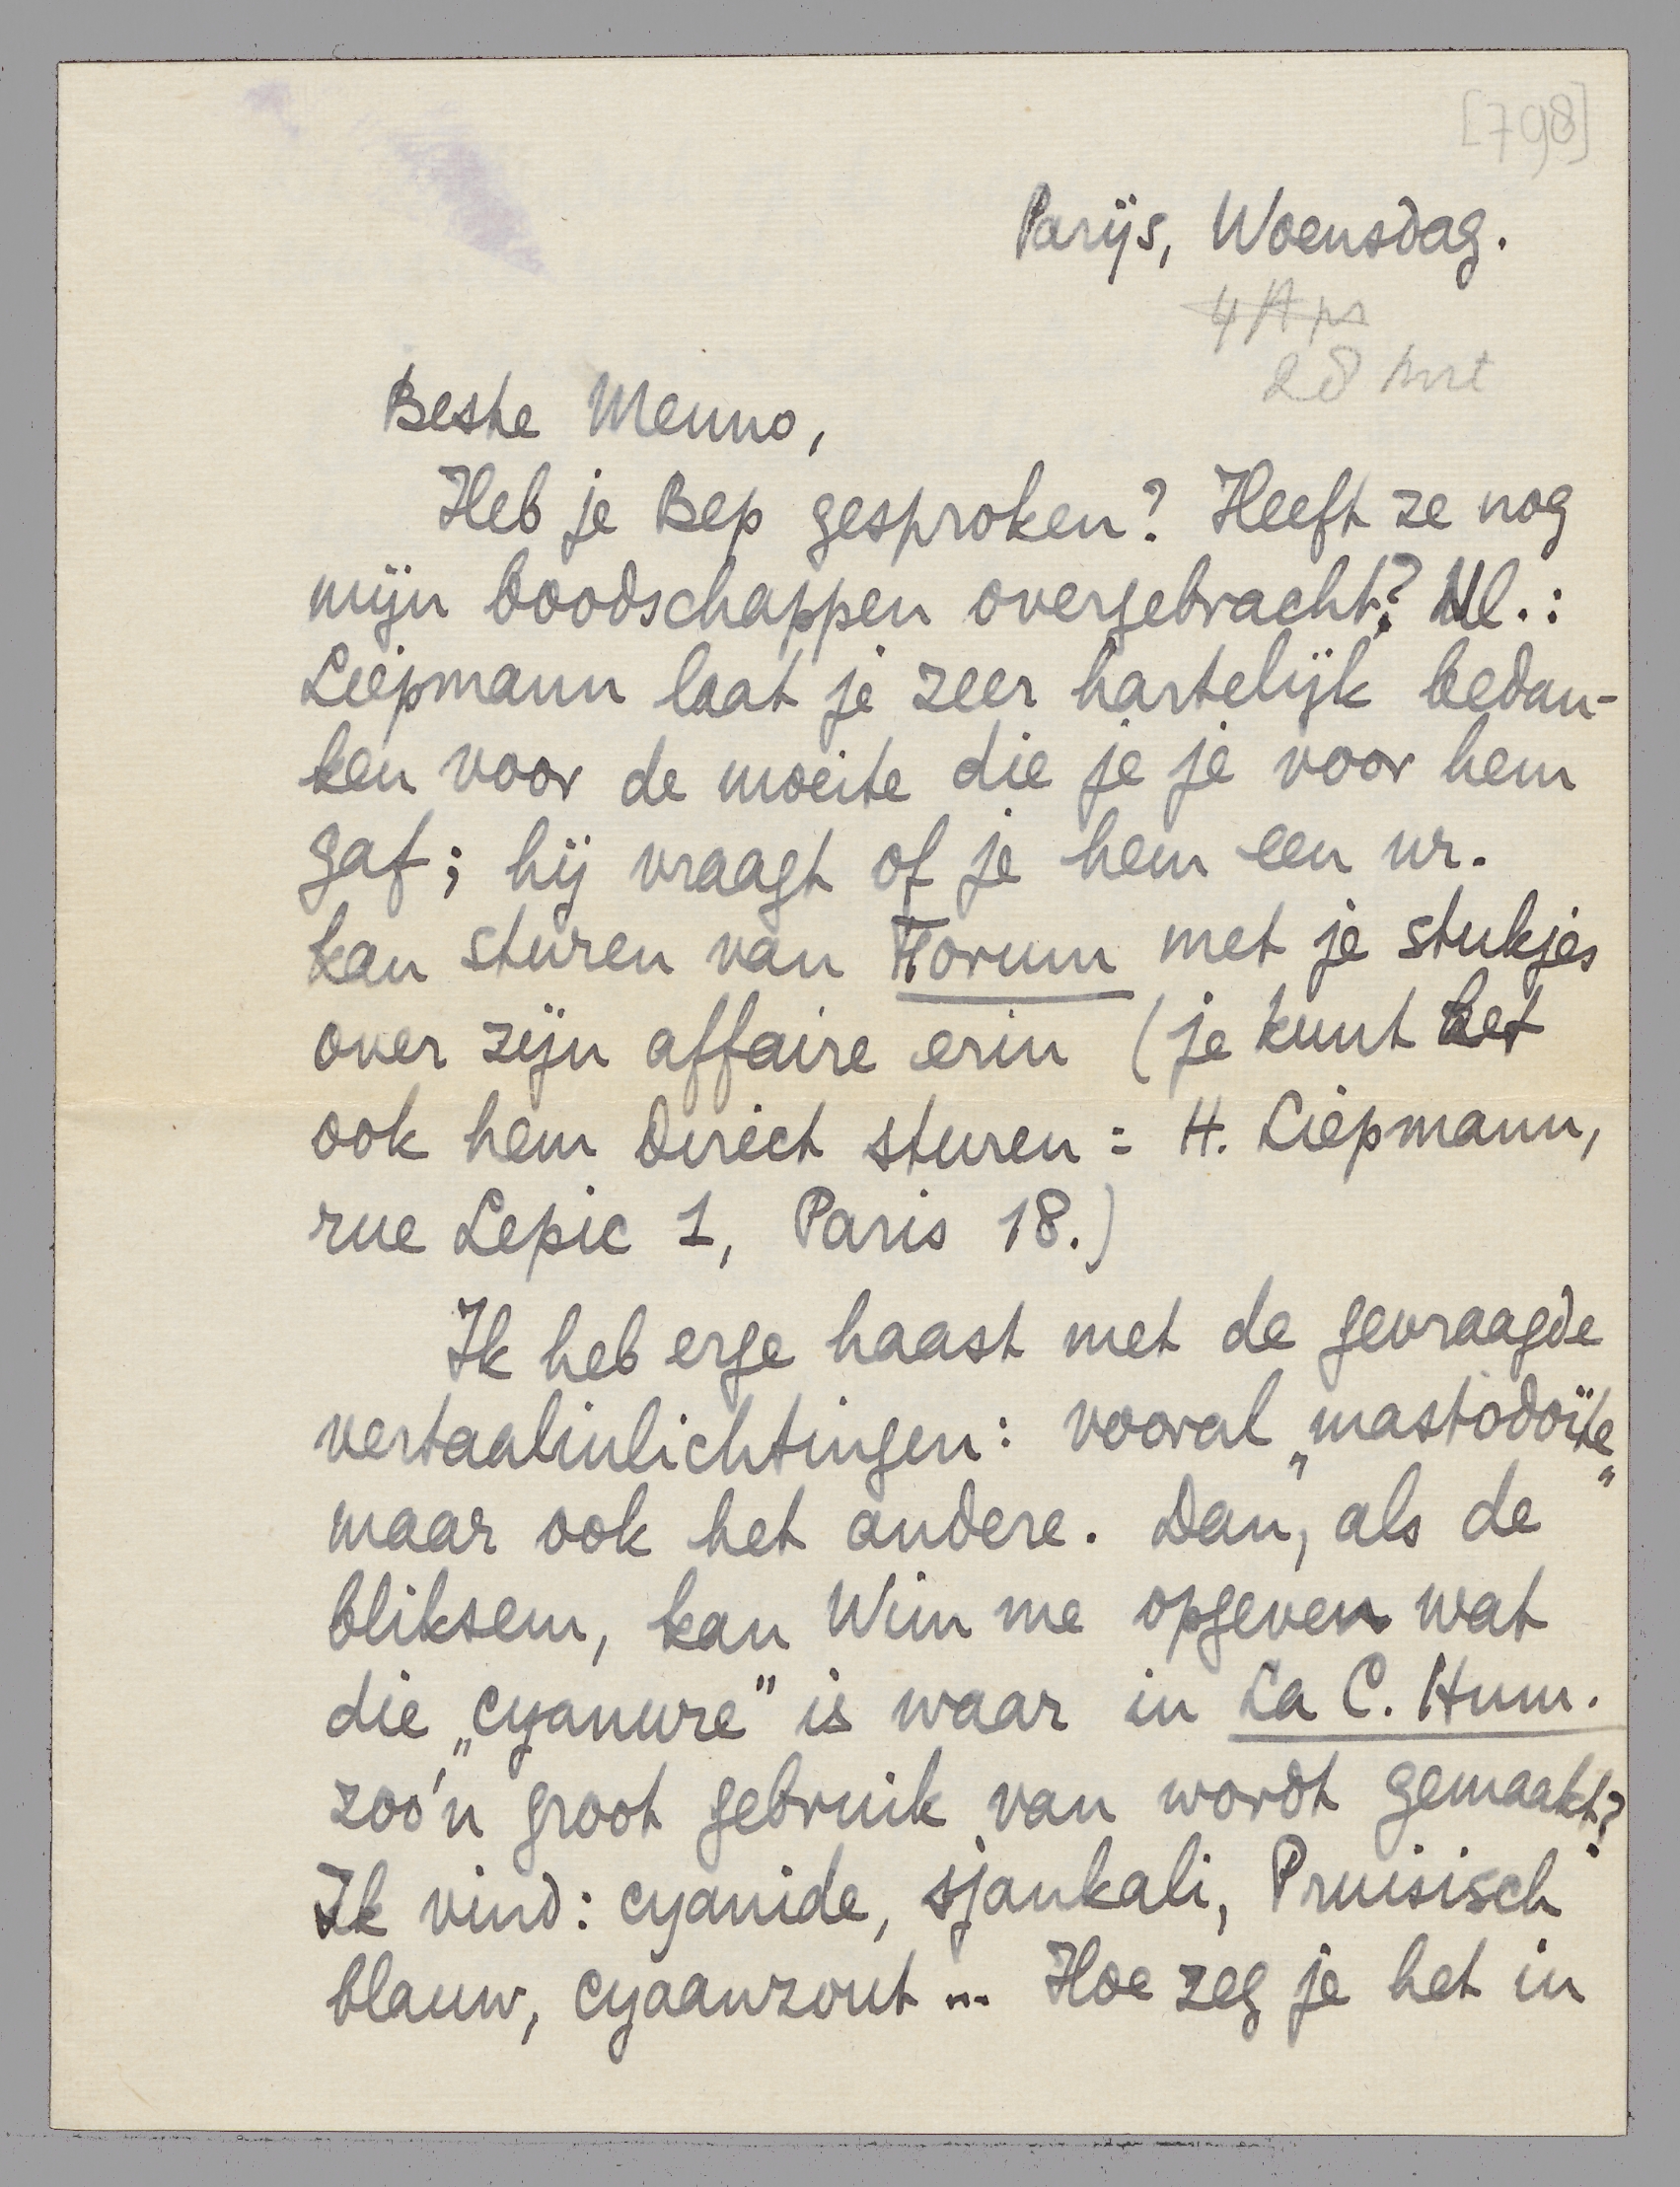 [798]
Parijs, Woensdag.
4 Apr
28 mrt
Beste Menno,
Heb je Bep gesproken? Heeft ze nog
mijn boodschappen overgebracht? Nl.:
Liepmann laat je zeer hartelijk bedan-
ken voor de moeite die je je voor hem
gaf; hij vraagt of je hem een nr.
kan sturen van Forum met je stukjes
over zijn affaire erin (je kunt het
ook hem direct sturen: H. Liepmann,
rue Lepic 1, Paris 18.)
Ik heb erge haast met de gevraagde
vertaalinlichtingen: vooral „mastodoïte"
maar ook het andere. Dan, als de
bliksem, kan Wim me opgeven wat
die „cyanure" is waar in La C. Hum.
zoo'n groot gebruik van wordt gemaakt?
Ik vind: cyanide, sjankali, Pruisisch
blauw, cyaanzout... Hoe zeg je het in